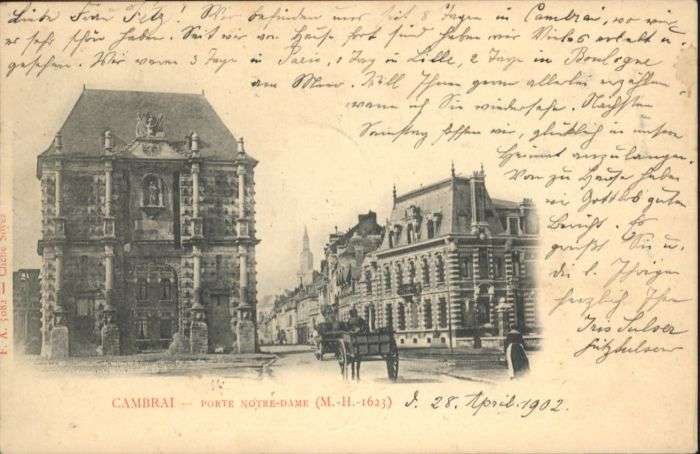 Liebe Frau Seitz! Wir befinden uns seit 8 Tagen in Cambrai, wo wir
es sehr schön haben. Seit wir von Hause fort sind haben wir Vieles erlebt u.
gesehen. Wir waren 3 Tage in Paris, 1 Tag in Lille, 2 Tage in Boulogne
am Meer. Will Ihnen gerne allerlei erzählen
wenn ich Sie wiedersehe. Nächsten
Samstag hoffen wir, glücklich in unsere
Heimat anzulangen.
Von zu Hause haben
wir Gottlob guten
Bericht. Es
grüßt Sie u.
die l. Ihrigen
herzlich Ihre
F. A. 3082 — Cliché Silvès
CAMBRAI — PORTE NOTRE-DAME (M.-H.-1623)
d. 28. April. 1902.